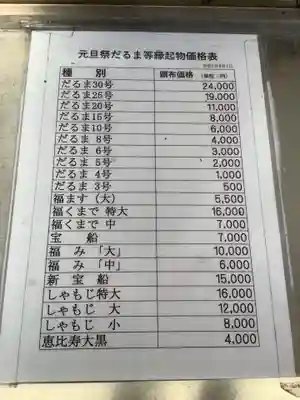 元旦祭だるま等縁起物価格表
種 別 頒布価格 (単位:円)
だるま30号 24,000
だるま25号 19,000
だるま20号 11,000
だるま15号 8,000
だるま10号 6,000
だるま 8号 4,000
だるま 6号 3,000
だるま 5号 2,000
だるま 4号 1,000
だるま 3号 500
福ます(大) 5,500
福くまで 特大 16,000
福くまで 中 7,000
宝 船 7,000
福 み 「大」 10,000
福 み 「中」 6,000
新 宝 船 15,000
しゃもじ特大 16,000
しゃもじ 大 12,000
しゃもじ 小 8,000
恵比寿大黒 4,000